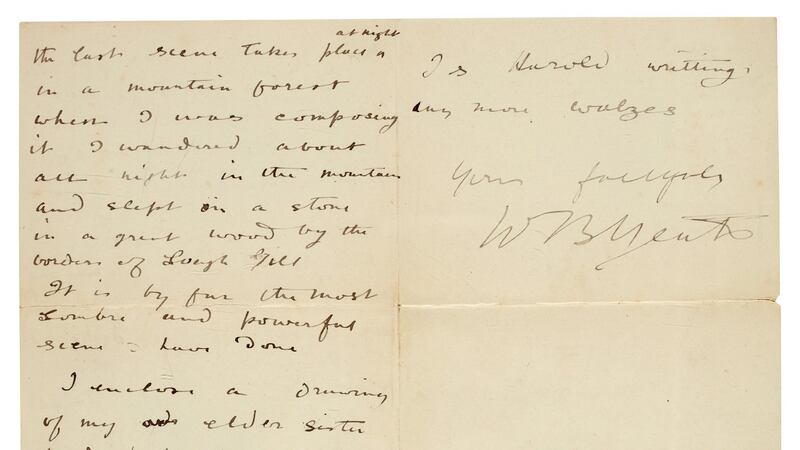 at night
the last scene takes place
in a mountain forest
when I was composing
it I wandered about
all night in the mountains
and slept on a stone
in a great wood by the
borders of Lough Gill
It is by far the most
sombre and powerful
scene I have done
I enclose a drawing
of my elder sister
Is Harold writting
any more walzes
Yours
W B Yeats